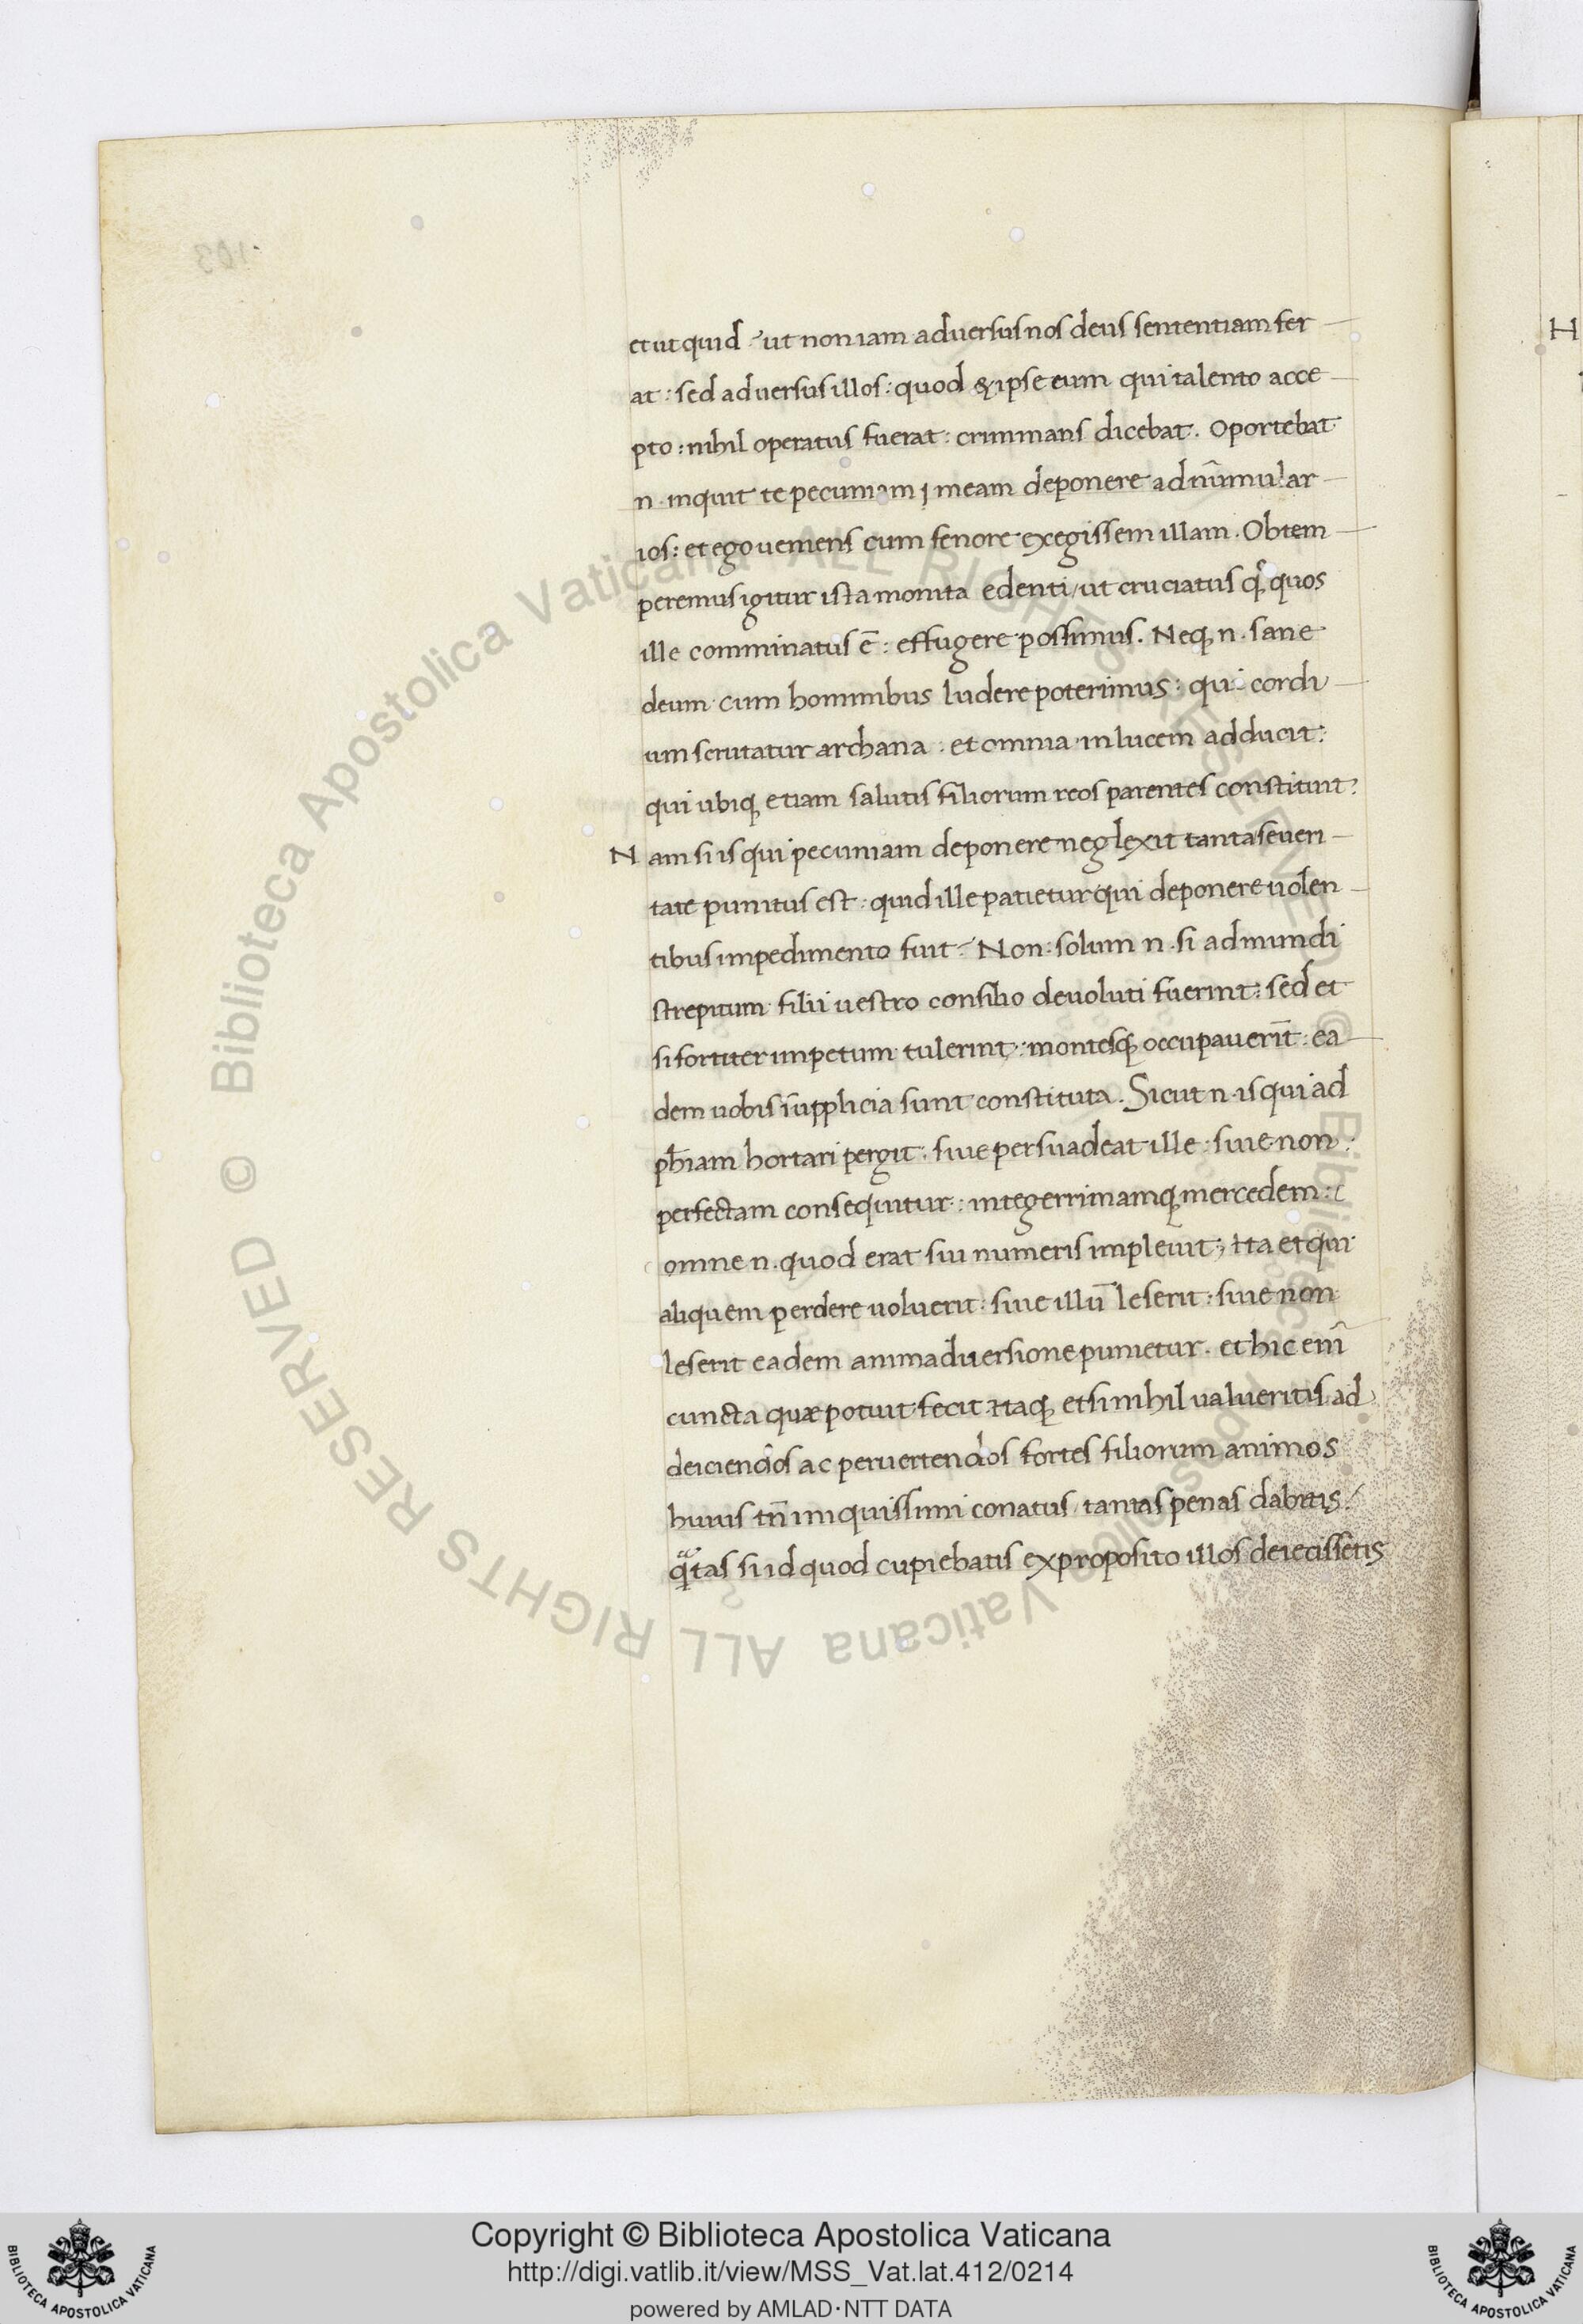 et ut quid? ut non iam adversus nos deus sententiam fer
at: sed adversus illos: quod & ipse eum qui talento acce
pto: nihil operatus fuerat: criminans dicebat. Oportebat
n. inquit te pecuniam meam deponere ad nūmular
ios: et ego veniens cum fenore exegissem illam. Obtem
peremus igitur ista monita edenti, ut cruciatus quos
ille comminatus ē: effugere possimus. Neqꝫ n. sane
deum cum hominibus ludere poterimus: qui cordi
um scrutatur archana: et omnia in lucem adducit:
qui ubiqꝫ etiam salutis filiorum reos parentes constituit?
Nam si is qui pecuniam deponere neglexit tanta severi
tate punitus est: quid ille patietur qui deponere volen
tibus impedimento fuit? Non: solum n. si ad mundi
strepitum filii vestro consilio devoluti fuerint: sed et
si fortiter impetum tulerint: montesqꝫ occupaverīt: ea
dem vobis supplicia sunt constituta. Sicut n. is qui ad
pħiam hortari pergit: sive persuadeat ille: sive non:
perfectam consequitur: integerrimamqꝫ mercedem:
omne n. quod erat sui numeris implevit; ita et qui
aliquem perdere voluerit: sive illū leserit: sive non
leserit eadem animadversione punietur. et hic enī
cuncta quæ potuit fecit. Itaqꝫ etsi nihil valueritis ad
deiciendos ac pervertendos fortes filiorum animos
huius tn̄ iniquissimi conatus, tantas penas dabitis:
qᵃtas si id quod cupiebatis ex proposito illos deiecissetis
Copyright © Biblioteca Apostolica Vaticana
http://digi.vatlib.it/view/MSS_Vat.lat.412/0214
powered by AMLAD·NTT DATA
BIBLIOTECA APOSTOLICA VATICANA
BIBLIOTECA APOSTOLICA VATICANA
© Biblioteca Apostolica Vaticana ALL RIGHTS RESERVED
© Biblioteca Apostolica Vaticana ALL RIGHTS RESERVED